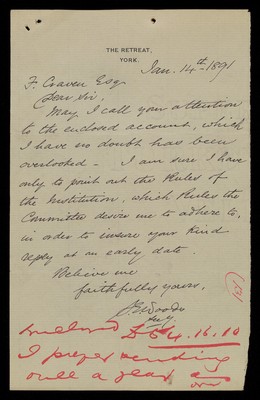 THE RETREAT,
YORK.
Jan. 14th 1891
F. Craven Esq
Dear Sir,
May I call your attention
to the enclosed account, which
I have no doubt has been
overlooked - I am sure I have
only to point out the Rules of
the Institution, which Rules the
Committee desire me to adhere to,
in order to insure your kind
reply at an early date.
Believe me
faithfully yours,
Woods
Enclosed £54.16.10
I prefer sending
a year